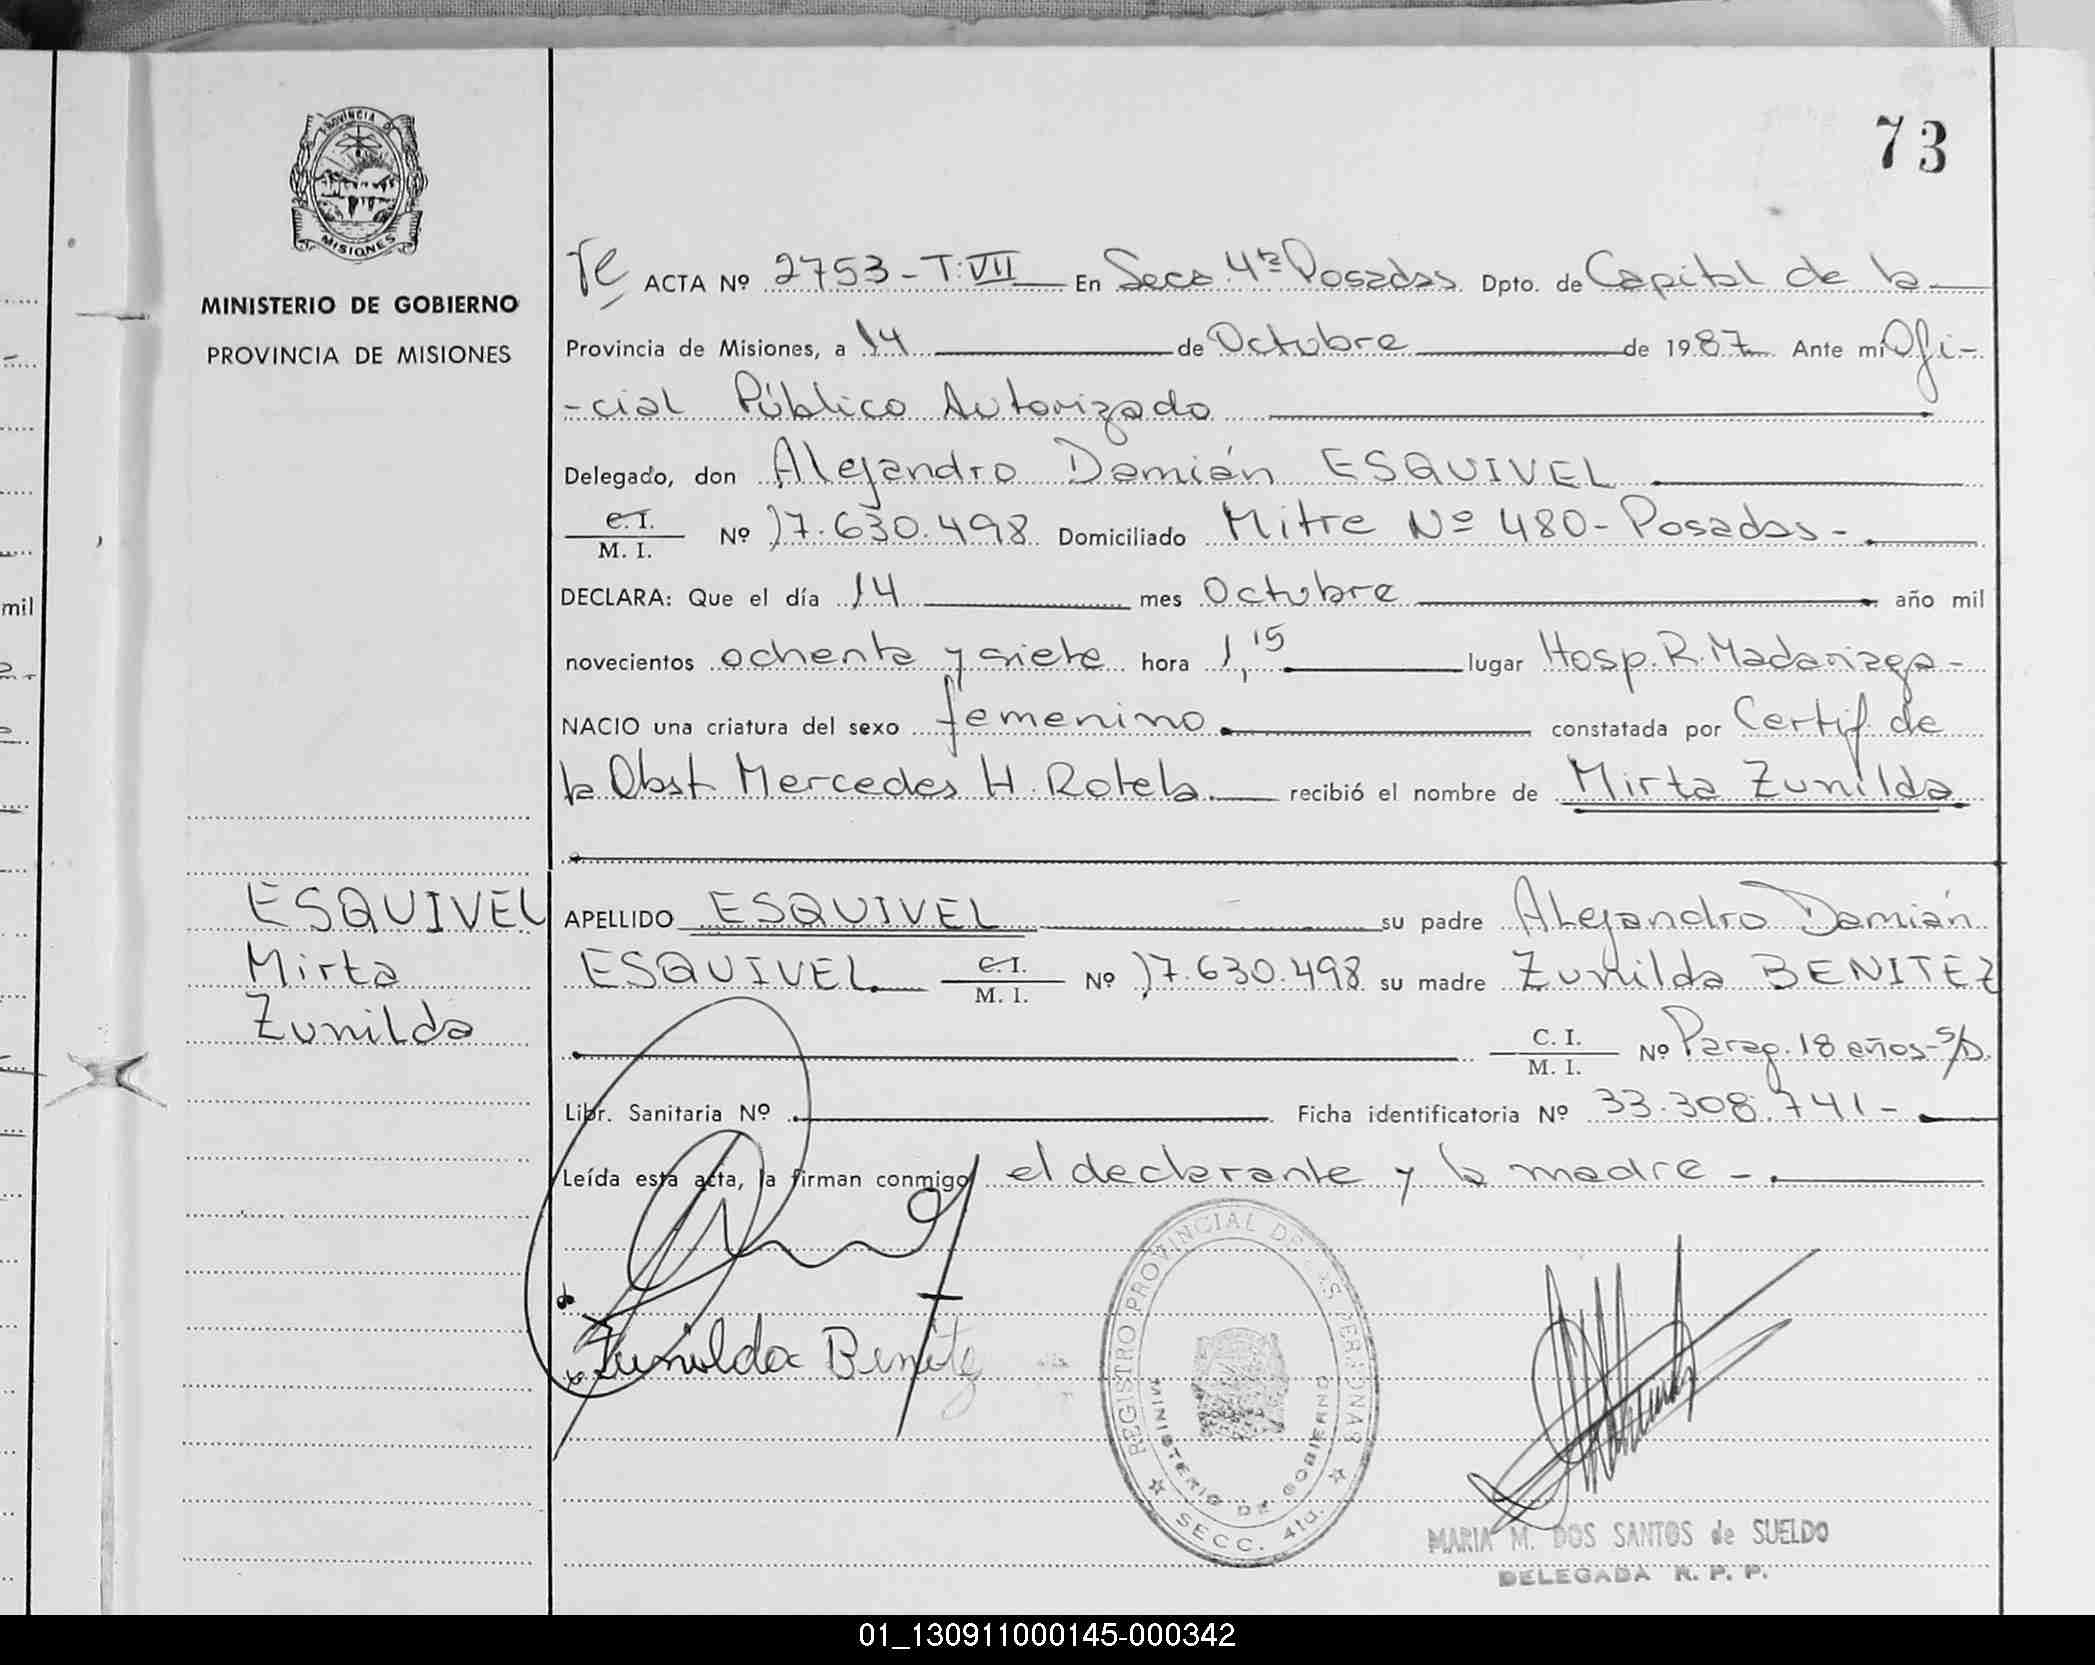 73
PROVINCIA DE
MISIONES
MINISTERIO DE GOBIERNO
PROVINCIA DE MISIONES
ACTA Nº 2753-T:VII En Secc. 4ta Posadas Dpto. de Capital de la
Provincia de Misiones, a 14 de Octubre de 1987 Ante mi Ofi-
-cial Público Autorizado
Delegado, don Alejandro Damián ESQUIVEL
C.I. M. I. Nº 17.630.498 Domiciliado Mitre Nº 480-Posadas-
DECLARA: Que el día 14 mes Octubre año mil
novecientos ochenta y siete hora 1,15 lugar Hosp. R. Madariaga-
NACIO una criatura del sexo femenino constatada por Certif. de
la Obst. Mercedes H. Rotela recibió el nombre de Mirta Zunilda
ESQUIVEL
Mirta
Zunilda
APELLIDO ESQUIVEL su padre Alejandro Damián
ESQUIVEL C.I. M. I. Nº 17.630.498 su madre Zunilda BENITEZ
C. I. M. I. Nº Parag. 18 años-s/D.
Libr. Sanitaria Nº Ficha identificatoria Nº 33.308.741-
Leída esta acta, la firman conmigo el declarante y la madre-
Zunilda Benitez
REGISTRO PROVINCIAL DE LAS PERSONAS
MINISTERIO DE GOBIERNO
SECC. 4ta.
MARIA M. DOS SANTOS de SUELDO
DELEGADA R. P. P.
mil
01_130911000145-000342